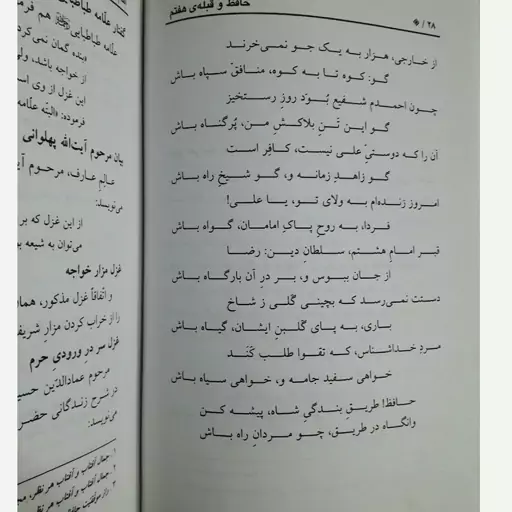 ۲۸ / حافظ و قبله‌ی هفتم
از خارجی، هزار به یک جو نمی‌خرند
گو: کوه تا به کوه، منافق سپاه باش
چون احمدم شفیع بُوَد روزِ رستخیز
گو این تنِ بلاکشِ من، پُرگناه باش
آن را که دوستیِ علی نیست، کافِر است
گو زاهدِ زمانه و، گو شیخِ راه باش
امروز زنده‌ام به ولای تو، یا علی!
فردا، به روحِ پاکِ امامان، گواه باش
قبرِ امامِ هشتم، سلطانِ دین: رضا
از جان ببوس و، بر درِ آن بارگاه باش
دستت نمی‌رسد که بچینی گلی ز شاخ
باری، به پای گلبنِ ایشان، گیاه باش
مردِ خداشناس، که تقوا طلب کُنَد
خواهی سفید جامه و، خواهی سیاه باش
حافظ! طریقِ بندگیِ شاه، پیشه کن
وانگاه در طریق، چو مردانِ راه باش
گفتار علّامه طباطبایی
علّامه طباطبایی هم
«بنده گمان نمی‌کرد
از خواجه باشد، ولی
این غزل از وی است
فرموده: «البتّه علّامه
بیان مرحوم آیت‌الله پهلوانی
عالِم عارف، مرحوم
می‌نویسد:
از این غزل که بر
می‌توان به شیعه
غزل مزار خواجه
و اتّفاقاً غزل مذکور،
را از خراب کردن مزارِ
غزل سر در ورودیِ حرم
مرحوم عمادالدّین
در شرح زندگانی
می‌نویسد:
۱. جمال آفتاب و آفتاب هر نظر،
۲. جمال آفتاب و آفتاب هر نظر